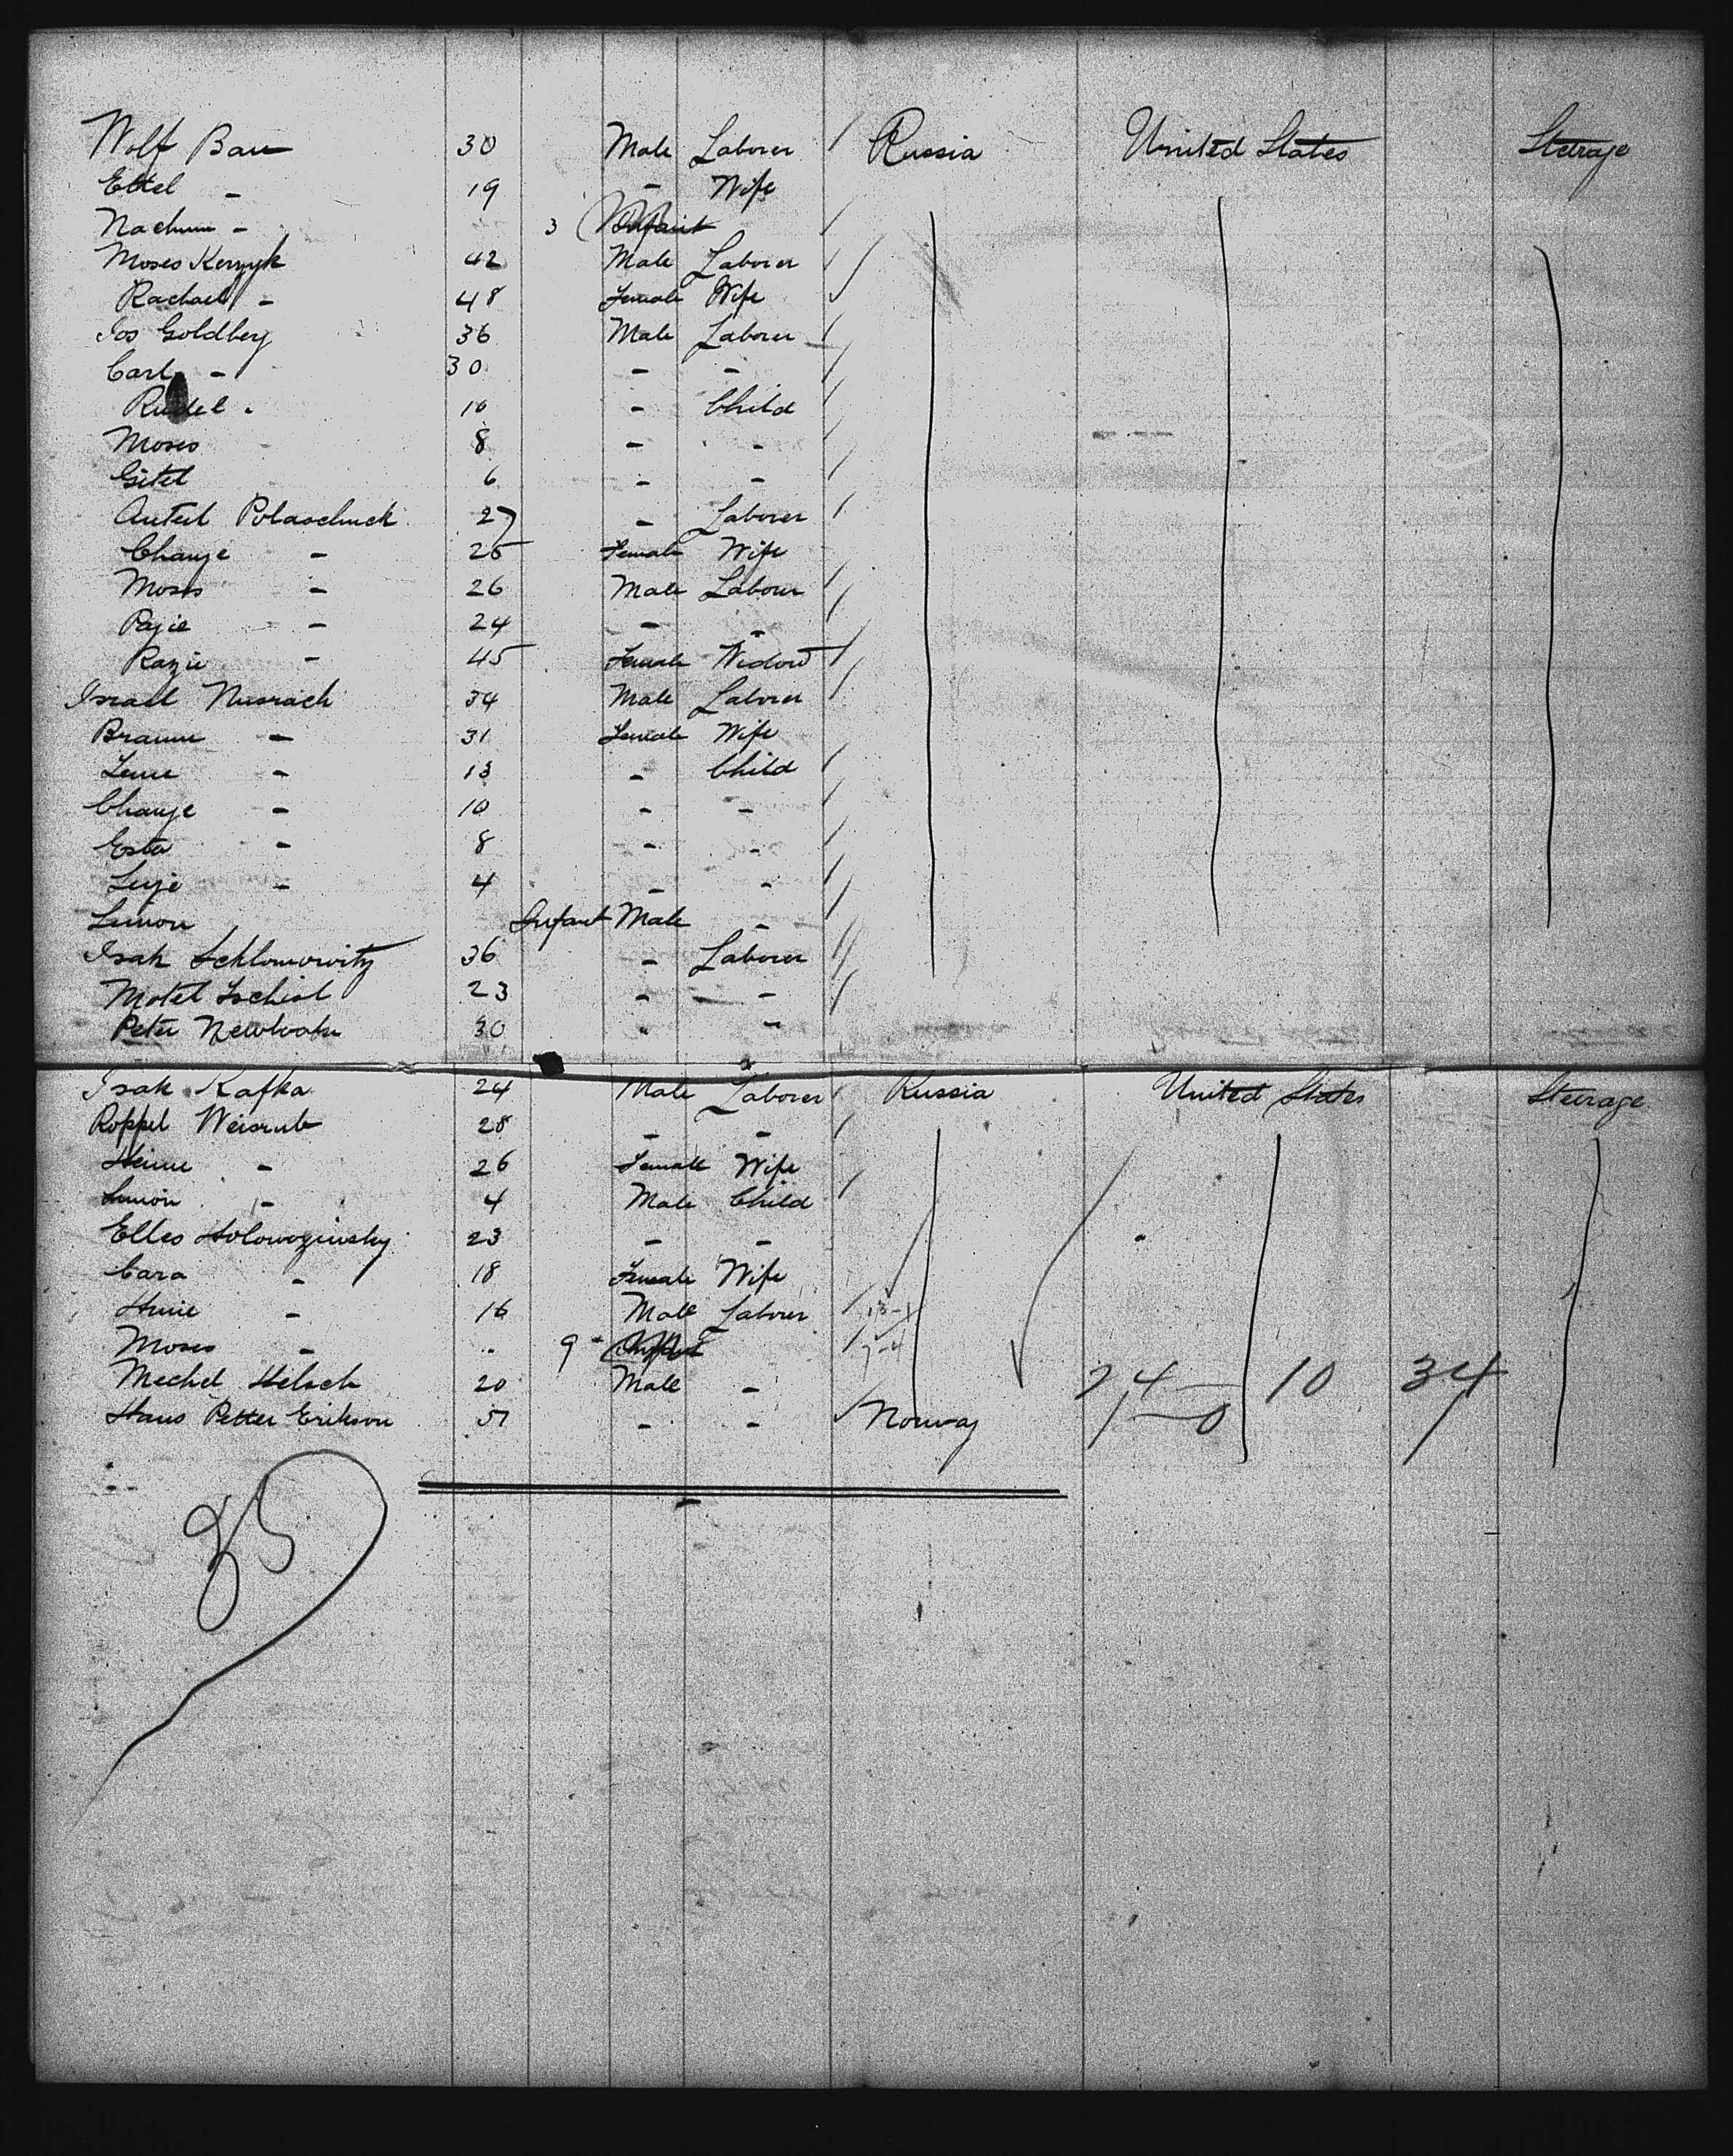 Wolf Bau 30 Male Laborer Russia United States Steerage
Ettel - 19 - Wife
Nachum - 3 Infant
Moses Kerzyk 42 Male Laborer
Rachael - 48 Female Wife
Jos Goldberg 36 Male Laborer
Carl - 30 - -
Rudel - 10 - Child
Moses 8 - -
Gitel 6 - -
Polaschuck 27 - Laborer
Chanje - 25 Female Wife
Moses - 26 Male Laborer
Pajie - 24 - -
Razie - 45 Female Widow
Israel 34 Male Laborer
31 Female Wife
13 - Child
Chanje - 10 - -
Ester - 8 - -
4 - -
Simon Infant Male -
Isak Schlomowitz 36 - Laborer
Motel 23 - -
Peter 30 " -
Isak Kafka 24 Male Laborer Russia United States Steerage
Weisrub 28 - -
26 Female Wife
Simon - 4 Male Child
Elles 23 - -
Cara - 18 Female Wife
16 Male Laborer 13-1
Moses - 9 Infant 7-4
Mechel 20 Male - 24 - 10 34
Hans Petter Erikson 51 - - Norway 1 - 0 1
35